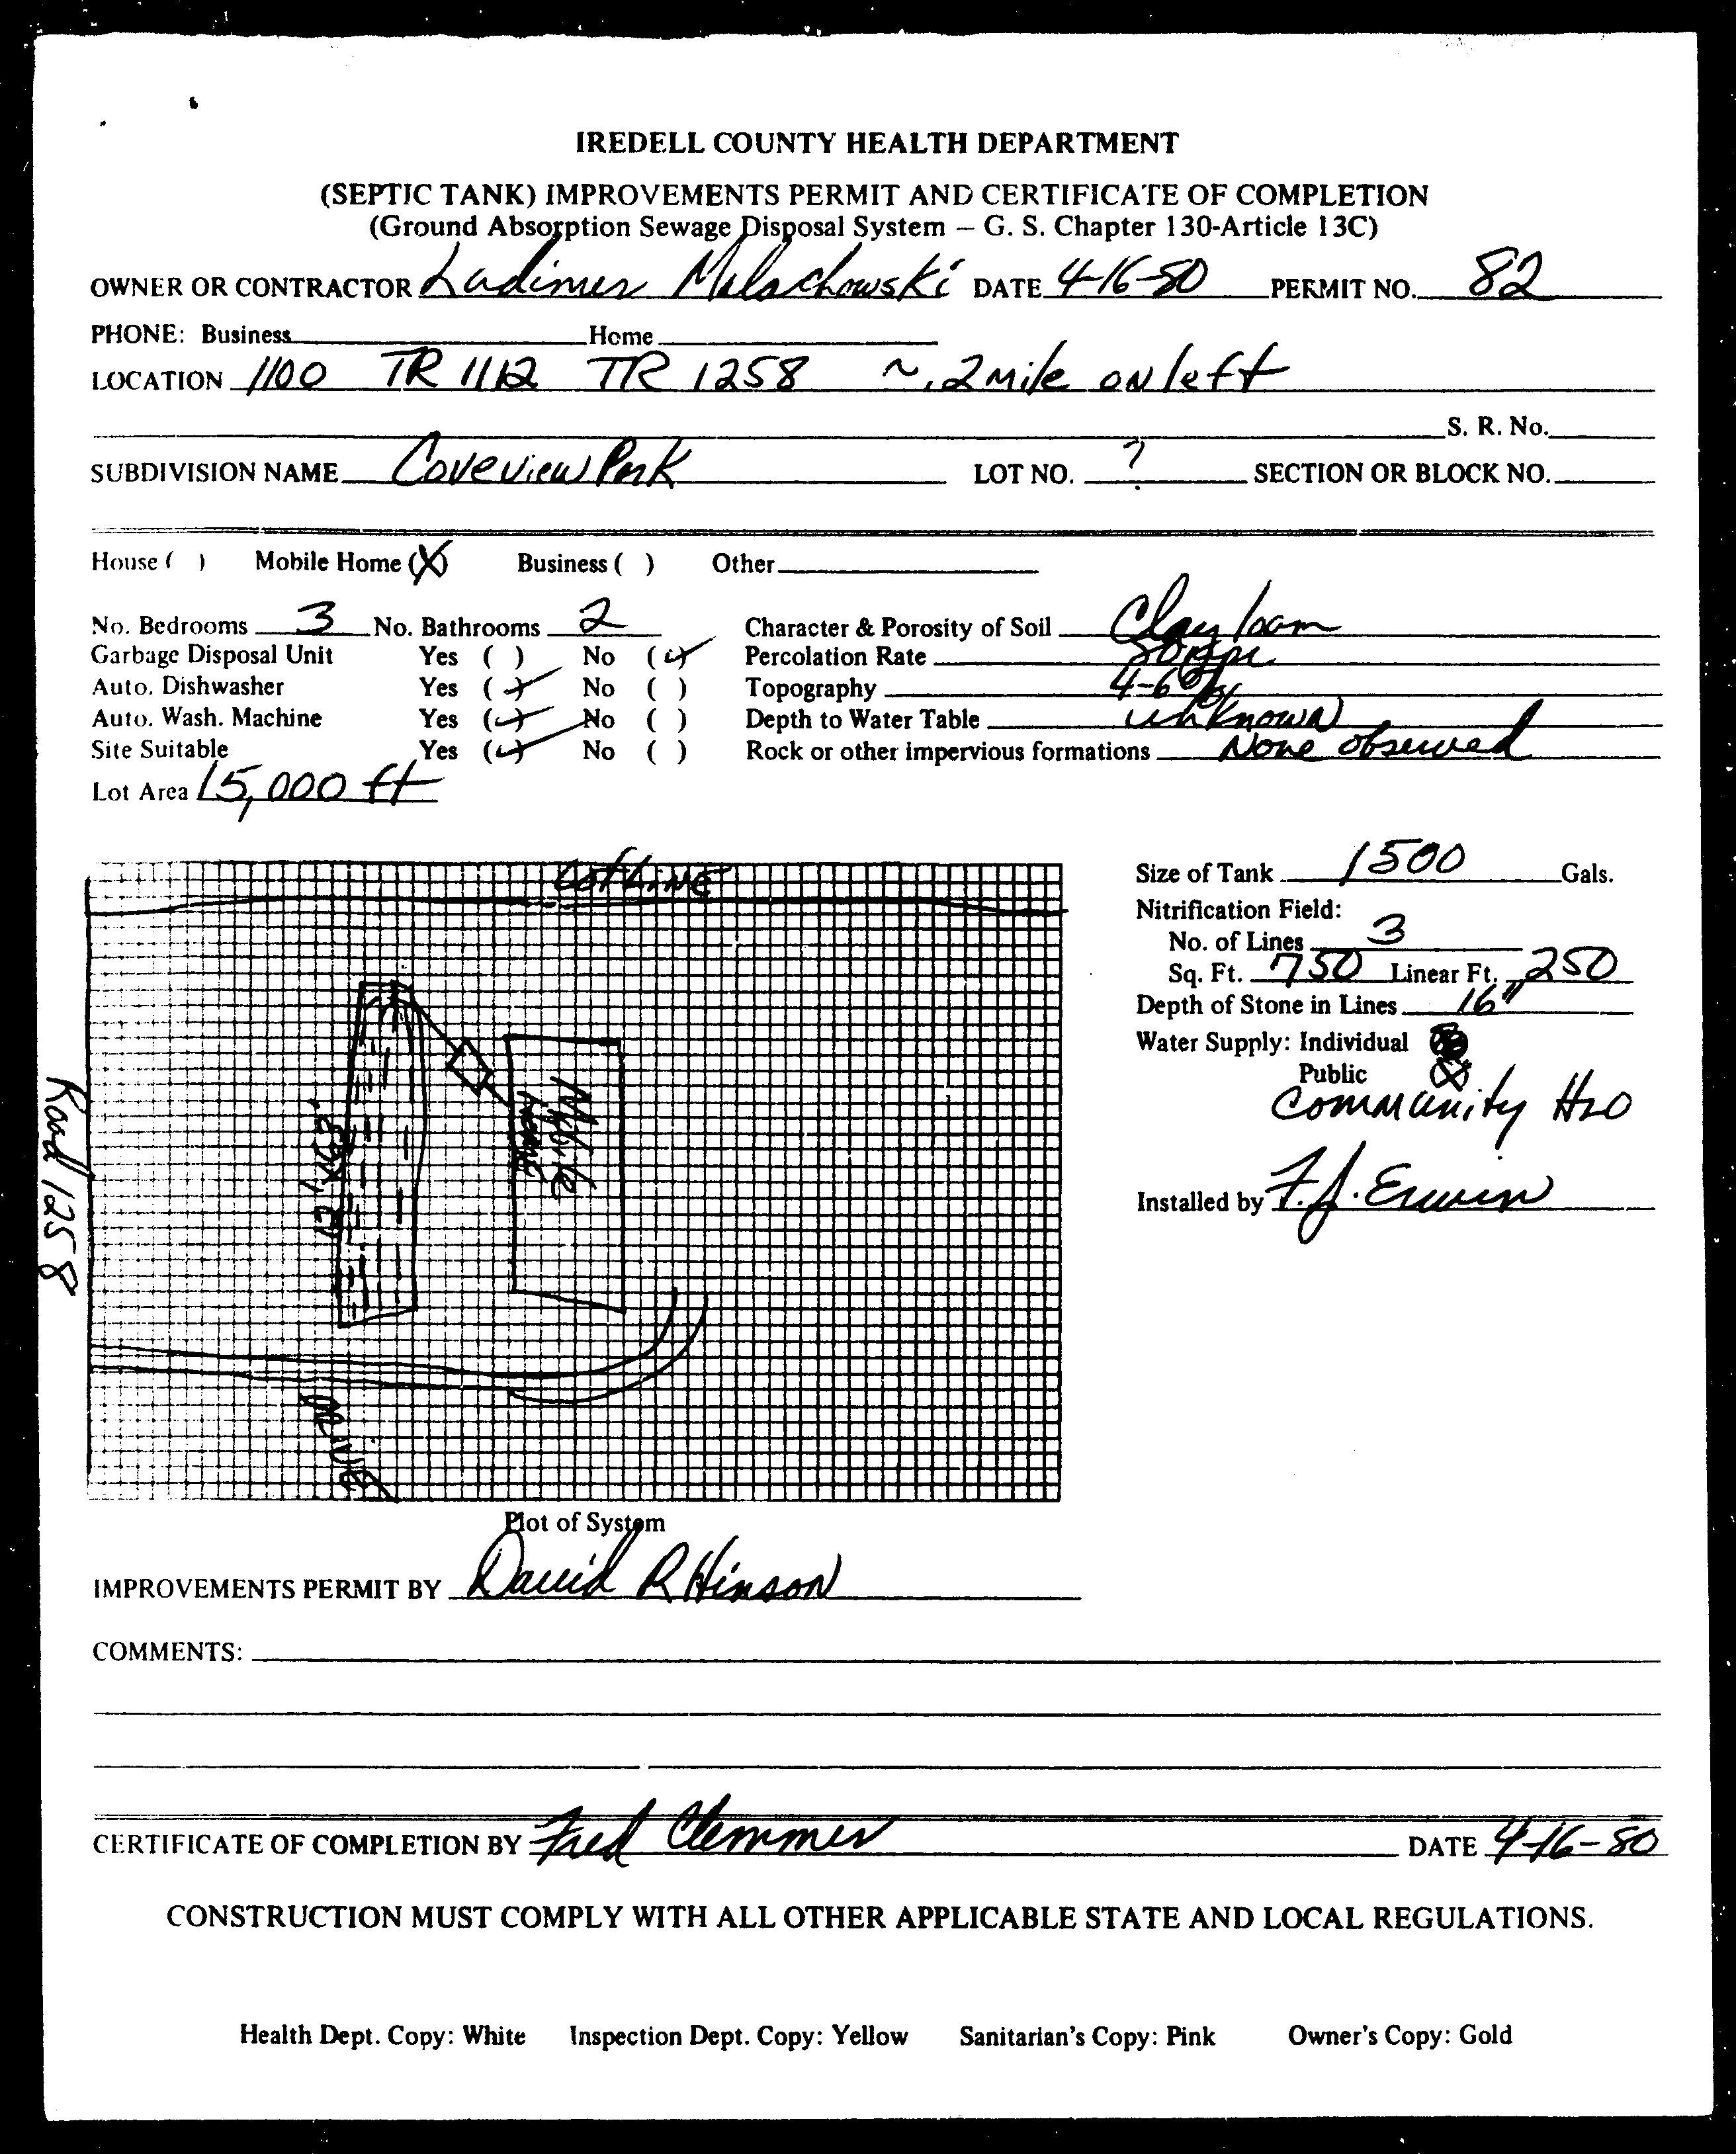 IREDELL COUNTY HEALTH DEPARTMENT
(SEPTIC TANK) IMPROVEMENTS PERMIT AND CERTIFICATE OF COMPLETION
(Ground Absorption Sewage Disposal System – G. S. Chapter 130-Article 13C)
OWNER OR CONTRACTOR Ladimer Malachowski DATE 4-16-80 PERMIT NO. 82
PHONE: Business Home
LOCATION 1100 TR 1112 TR 1258 ~ .2 mile on left
S. R. No.
SUBDIVISION NAME Coveview Park LOT NO. ? SECTION OR BLOCK NO.
House ( ) Mobile Home (X) Business ( ) Other
No. Bedrooms 3 No. Bathrooms 2 Character & Porosity of Soil Clay loam
Garbage Disposal Unit Yes ( ) No (✓) Percolation Rate
Auto. Dishwasher Yes (✓) No ( ) Topography 4-6%
Auto. Wash. Machine Yes (✓) No ( ) Depth to Water Table unknown
Site Suitable Yes (✓) No ( ) Rock or other impervious formations None observed
Lot Area 15,000 ft
Lot Line
Size of Tank 1500 Gals.
Nitrification Field:
No. of Lines 3
Sq. Ft. 750 Linear Ft. 250
Depth of Stone in Lines 16"
Water Supply: Individual
Public (X)
Community H2O
Installed by F. J. Erwin
Mobile
Home
Road 1258
Drive
Plot of System
IMPROVEMENTS PERMIT BY David R Hinson
COMMENTS:
CERTIFICATE OF COMPLETION BY Fred Clemmer DATE 4-16-80
CONSTRUCTION MUST COMPLY WITH ALL OTHER APPLICABLE STATE AND LOCAL REGULATIONS.
Health Dept. Copy: White Inspection Dept. Copy: Yellow Sanitarian's Copy: Pink Owner's Copy: Gold